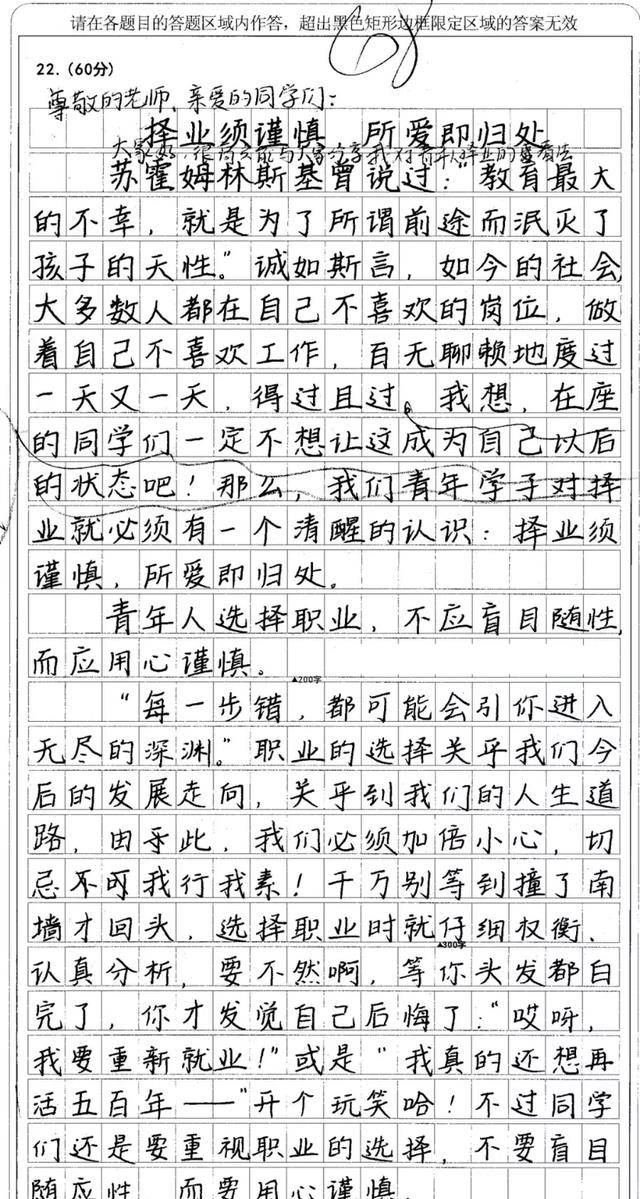 请在各题目的答题区域内作答，超出黑色矩形边框限定区域的答案无效
22.（60分）
尊敬的老师、亲爱的同学们：
择业须谨慎　所爱即归处
大家好，很高兴能与大家分享我对青年人择业的看法
苏霍姆林斯基曾说过：“教育最大
的不幸，就是为了所谓前途而泯灭了
孩子的天性。”诚如斯言，如今的社会，
大多数人都在自己不喜欢的岗位，做
着自己不喜欢工作，百无聊赖地度过
一天又一天，得过且过。我想，在座
的同学们一定不想让这成为自己以后
的状态吧！那么，我们青年学子对择
业就必须有一个清醒的认识：择业须
谨慎，所爱即归处。
青年人选择职业，不应盲目随性，
而应用心谨慎。
▲200字
“每一步错，都可能会引你进入
无尽的深渊。”职业的选择关乎我们今
后的发展走向，关乎到我们的人生道
路，由乎此，我们必须加倍小心，切
忌不可我行我素！千万别等到撞了南
墙才回头，选择职业时就仔细权衡、
▲300字
认真分析，要不然啊，等你头发都白
完了，你才发觉自己后悔了：“哎呀，
我要重新就业！”或是“我真的还想再
活五百年——”开个玩笑哈！不过同学
们还是要重视职业的选择，不要盲目
随应性，而要用心谨慎